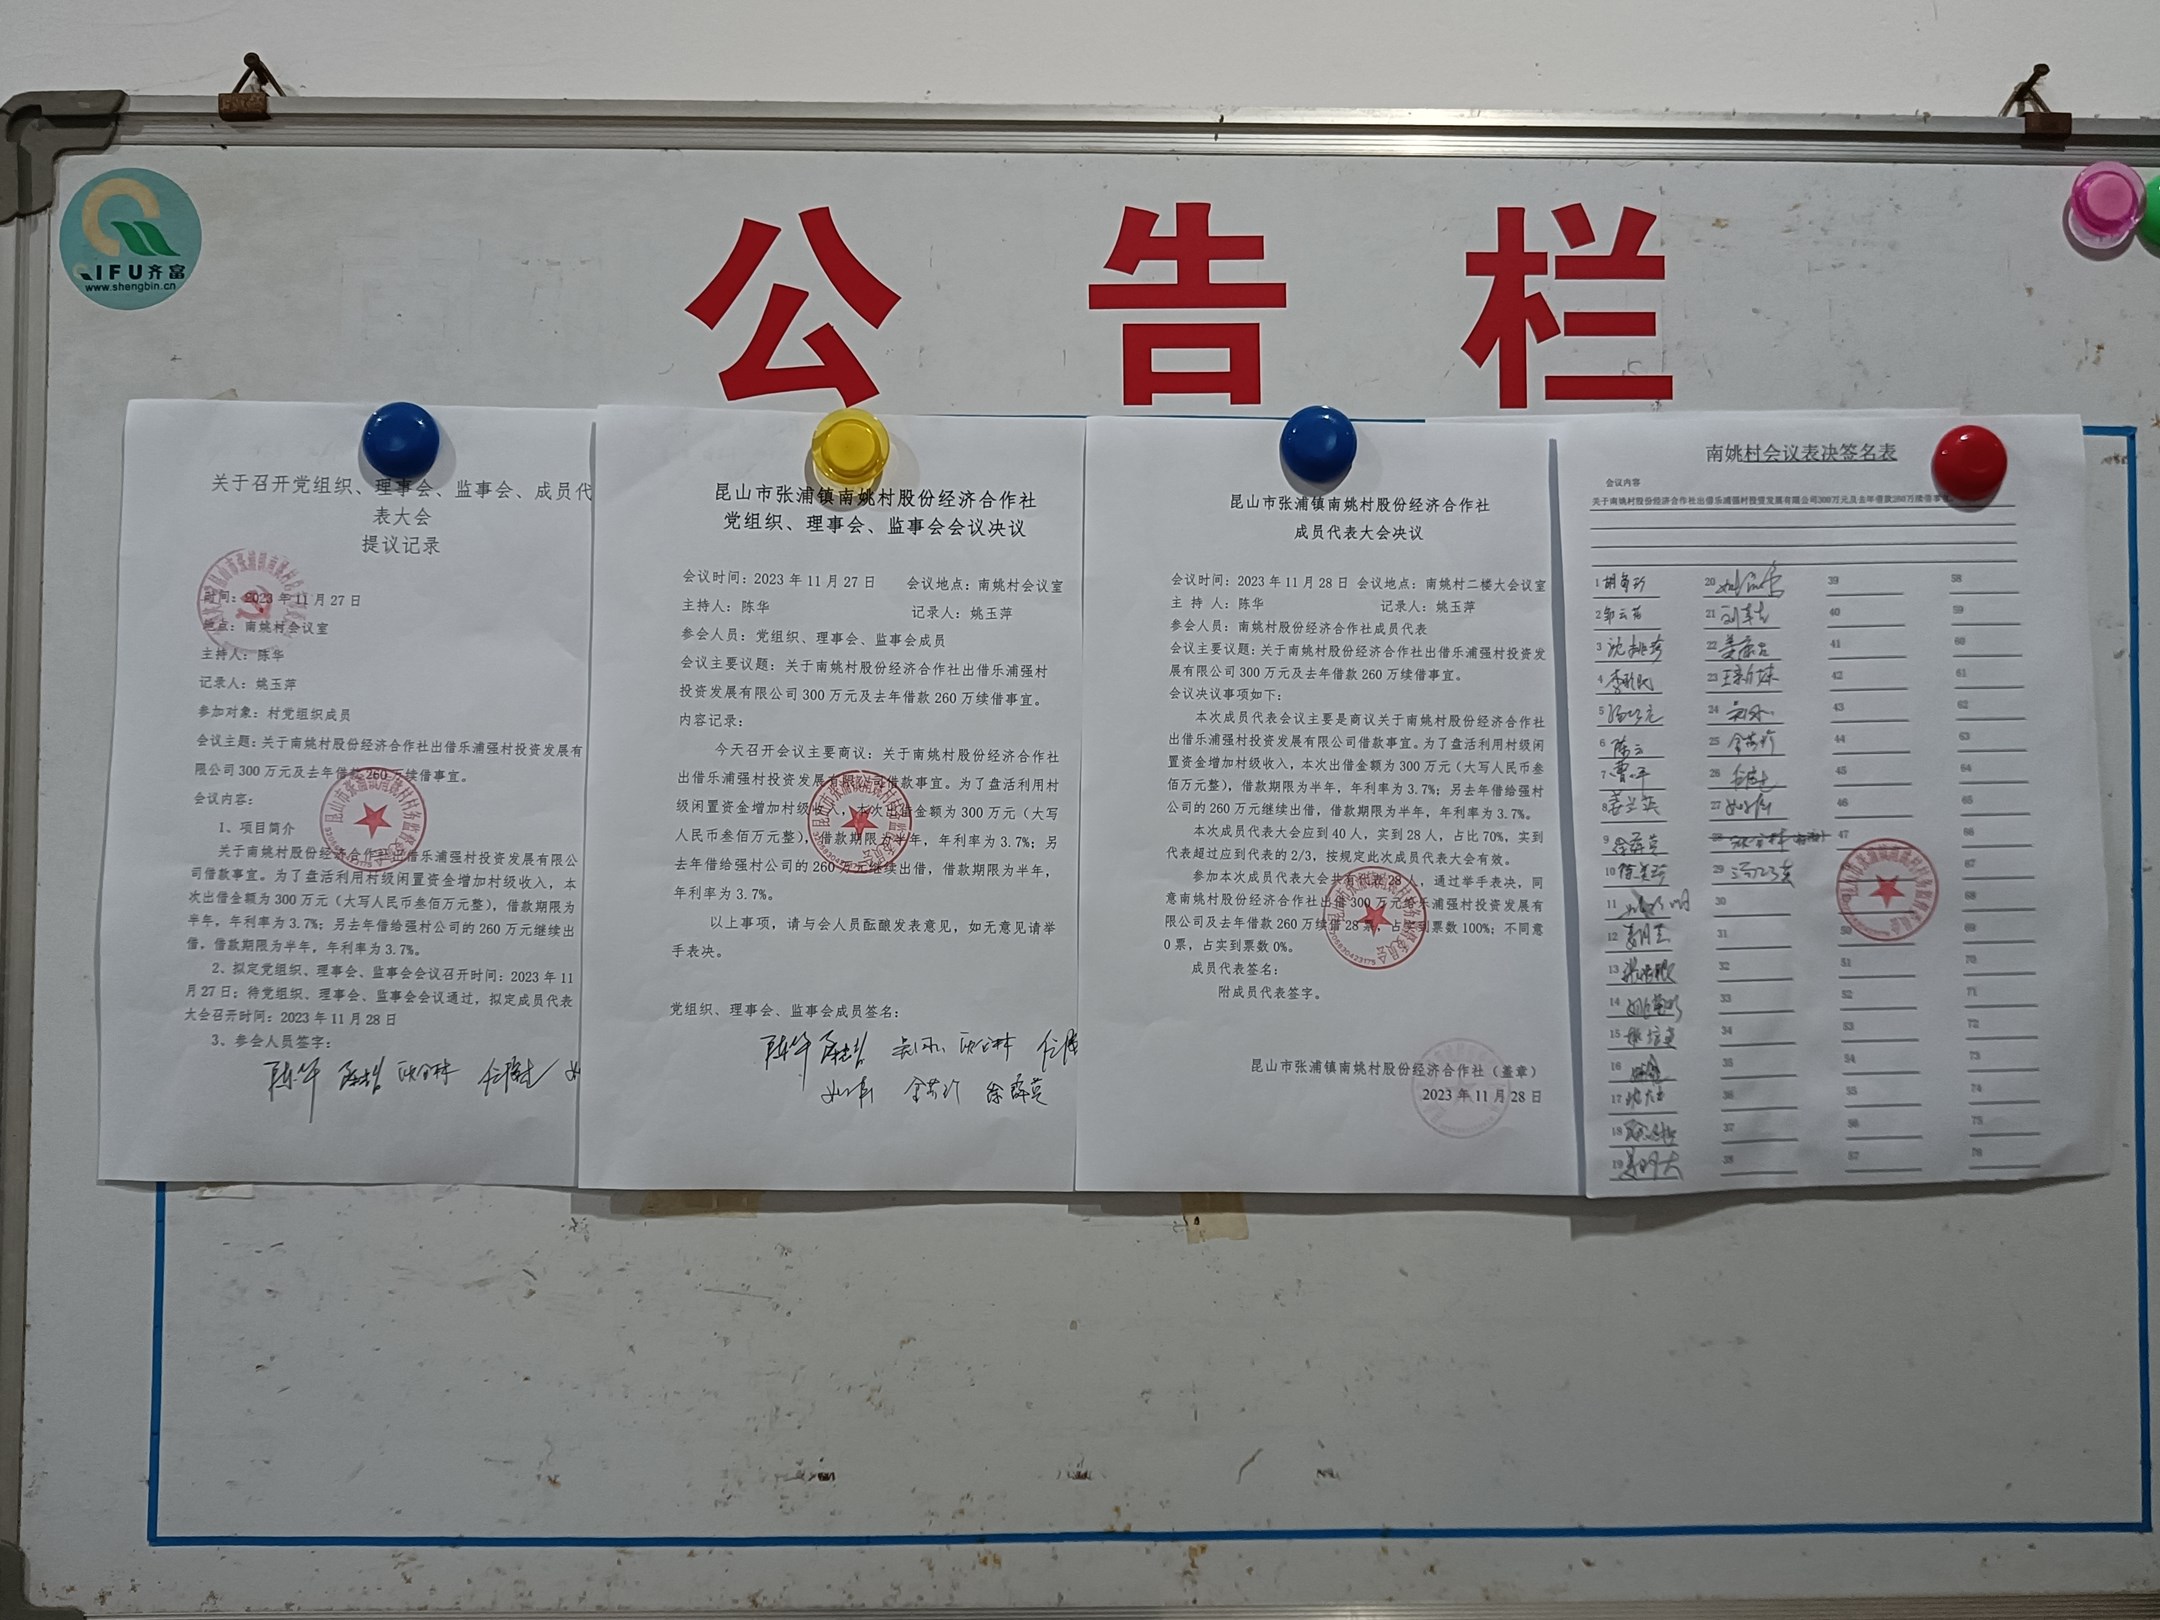 公告栏
QIFU齐富
www.shengbin.cn
关于召开党组织、理事会、监事会、成员代
表大会
提议记录
时间：2023年11月27日
地点：南姚村会议室
主持人：陈华
记录人：姚玉萍
参加对象：村党组织成员
会议主题：关于南姚村股份经济合作社出借乐浦强村投资发展有
限公司300万元及去年借款260万续借事宜。
会议内容：
1、项目简介
关于南姚村股份经济合作社出借乐浦强村投资发展有限公
司借款事宜。为了盘活利用村级闲置资金增加村级收入，本
次出借金额为300万元（大写人民币叁佰万元整），借款期限为
半年，年利率为3.7%；另去年借给强村公司的260万元继续出
借，借款期限为半年，年利率为3.7%。
2、拟定党组织、理事会、监事会会议召开时间：2023年11
月27日；待党组织、理事会、监事会会议通过，拟定成员代表
大会召开时间：2023年11月28日
3、参会人员签字：
陈华
昆山市张浦镇南姚村股份经济合作社
党组织、理事会、监事会会议决议
会议时间：2023年11月27日 会议地点：南姚村会议室
主持人：陈华 记录人：姚玉萍
参会人员：党组织、理事会、监事会成员
会议主要议题：关于南姚村股份经济合作社出借乐浦强村
投资发展有限公司300万元及去年借款260万续借事宜。
内容记录：
今天召开会议主要商议：关于南姚村股份经济合作社
出借乐浦强村投资发展有限公司借款事宜。为了盘活利用村
级闲置资金增加村级收入，本次出借金额为300万元（大写
人民币叁佰万元整），借款期限为半年，年利率为3.7%；另
去年借给强村公司的260万元继续出借，借款期限为半年，
年利率为3.7%。
以上事项，请与会人员酝酿发表意见，如无意见请举
手表决。
党组织、理事会、监事会成员签名：
陈华
昆山市张浦镇南姚村股份经济合作社
成员代表大会决议
会议时间：2023年11月28日 会议地点：南姚村二楼大会议室
主持人：陈华 记录人：姚玉萍
参会人员：南姚村股份经济合作社成员代表
会议主要议题：关于南姚村股份经济合作社出借乐浦强村投资发
展有限公司300万元及去年借款260万续借事宜。
会议决议事项如下：
本次成员代表会议主要是商议关于南姚村股份经济合作社
出借乐浦强村投资发展有限公司借款事宜。为了盘活利用村级闲
置资金增加村级收入，本次出借金额为300万元（大写人民币叁
佰万元整），借款期限为半年，年利率为3.7%；另去年借给强村
公司的260万元继续出借，借款期限为半年，年利率为3.7%。
本次成员代表大会应到40人，实到28人，占比70%，实到
代表超过应到代表的2/3，按规定此次成员代表大会有效。
参加本次成员代表大会共有代表28人，通过举手表决，同
意南姚村股份经济合作社出借300万元乐浦强村投资发展有
限公司及去年借款260万续借28票，占实到票数100%；不同意
0票，占实到票数0%。
成员代表签名：
附成员代表签字。
昆山市张浦镇南姚村股份经济合作社（盖章）
2023年11月28日
南姚村会议表决签名表
会议内容
关于南姚村股份经济合作社出借乐浦强村投资发展有限公司300万元及去年借款260万续借事宜
1 20 39 58
2 21 40 59
3 22 41 60
4 23 42 61
5 24 43 62
6 25 44 63
7 26 45 64
8 27 46 65
9 28 47 66
10 29 67
11 30 68
12 31 50 69
13 32 51 70
14 33 52 71
15 34 53 72
16 35 54 73
17 36 55 74
18 37 56 75
19 38 57 76